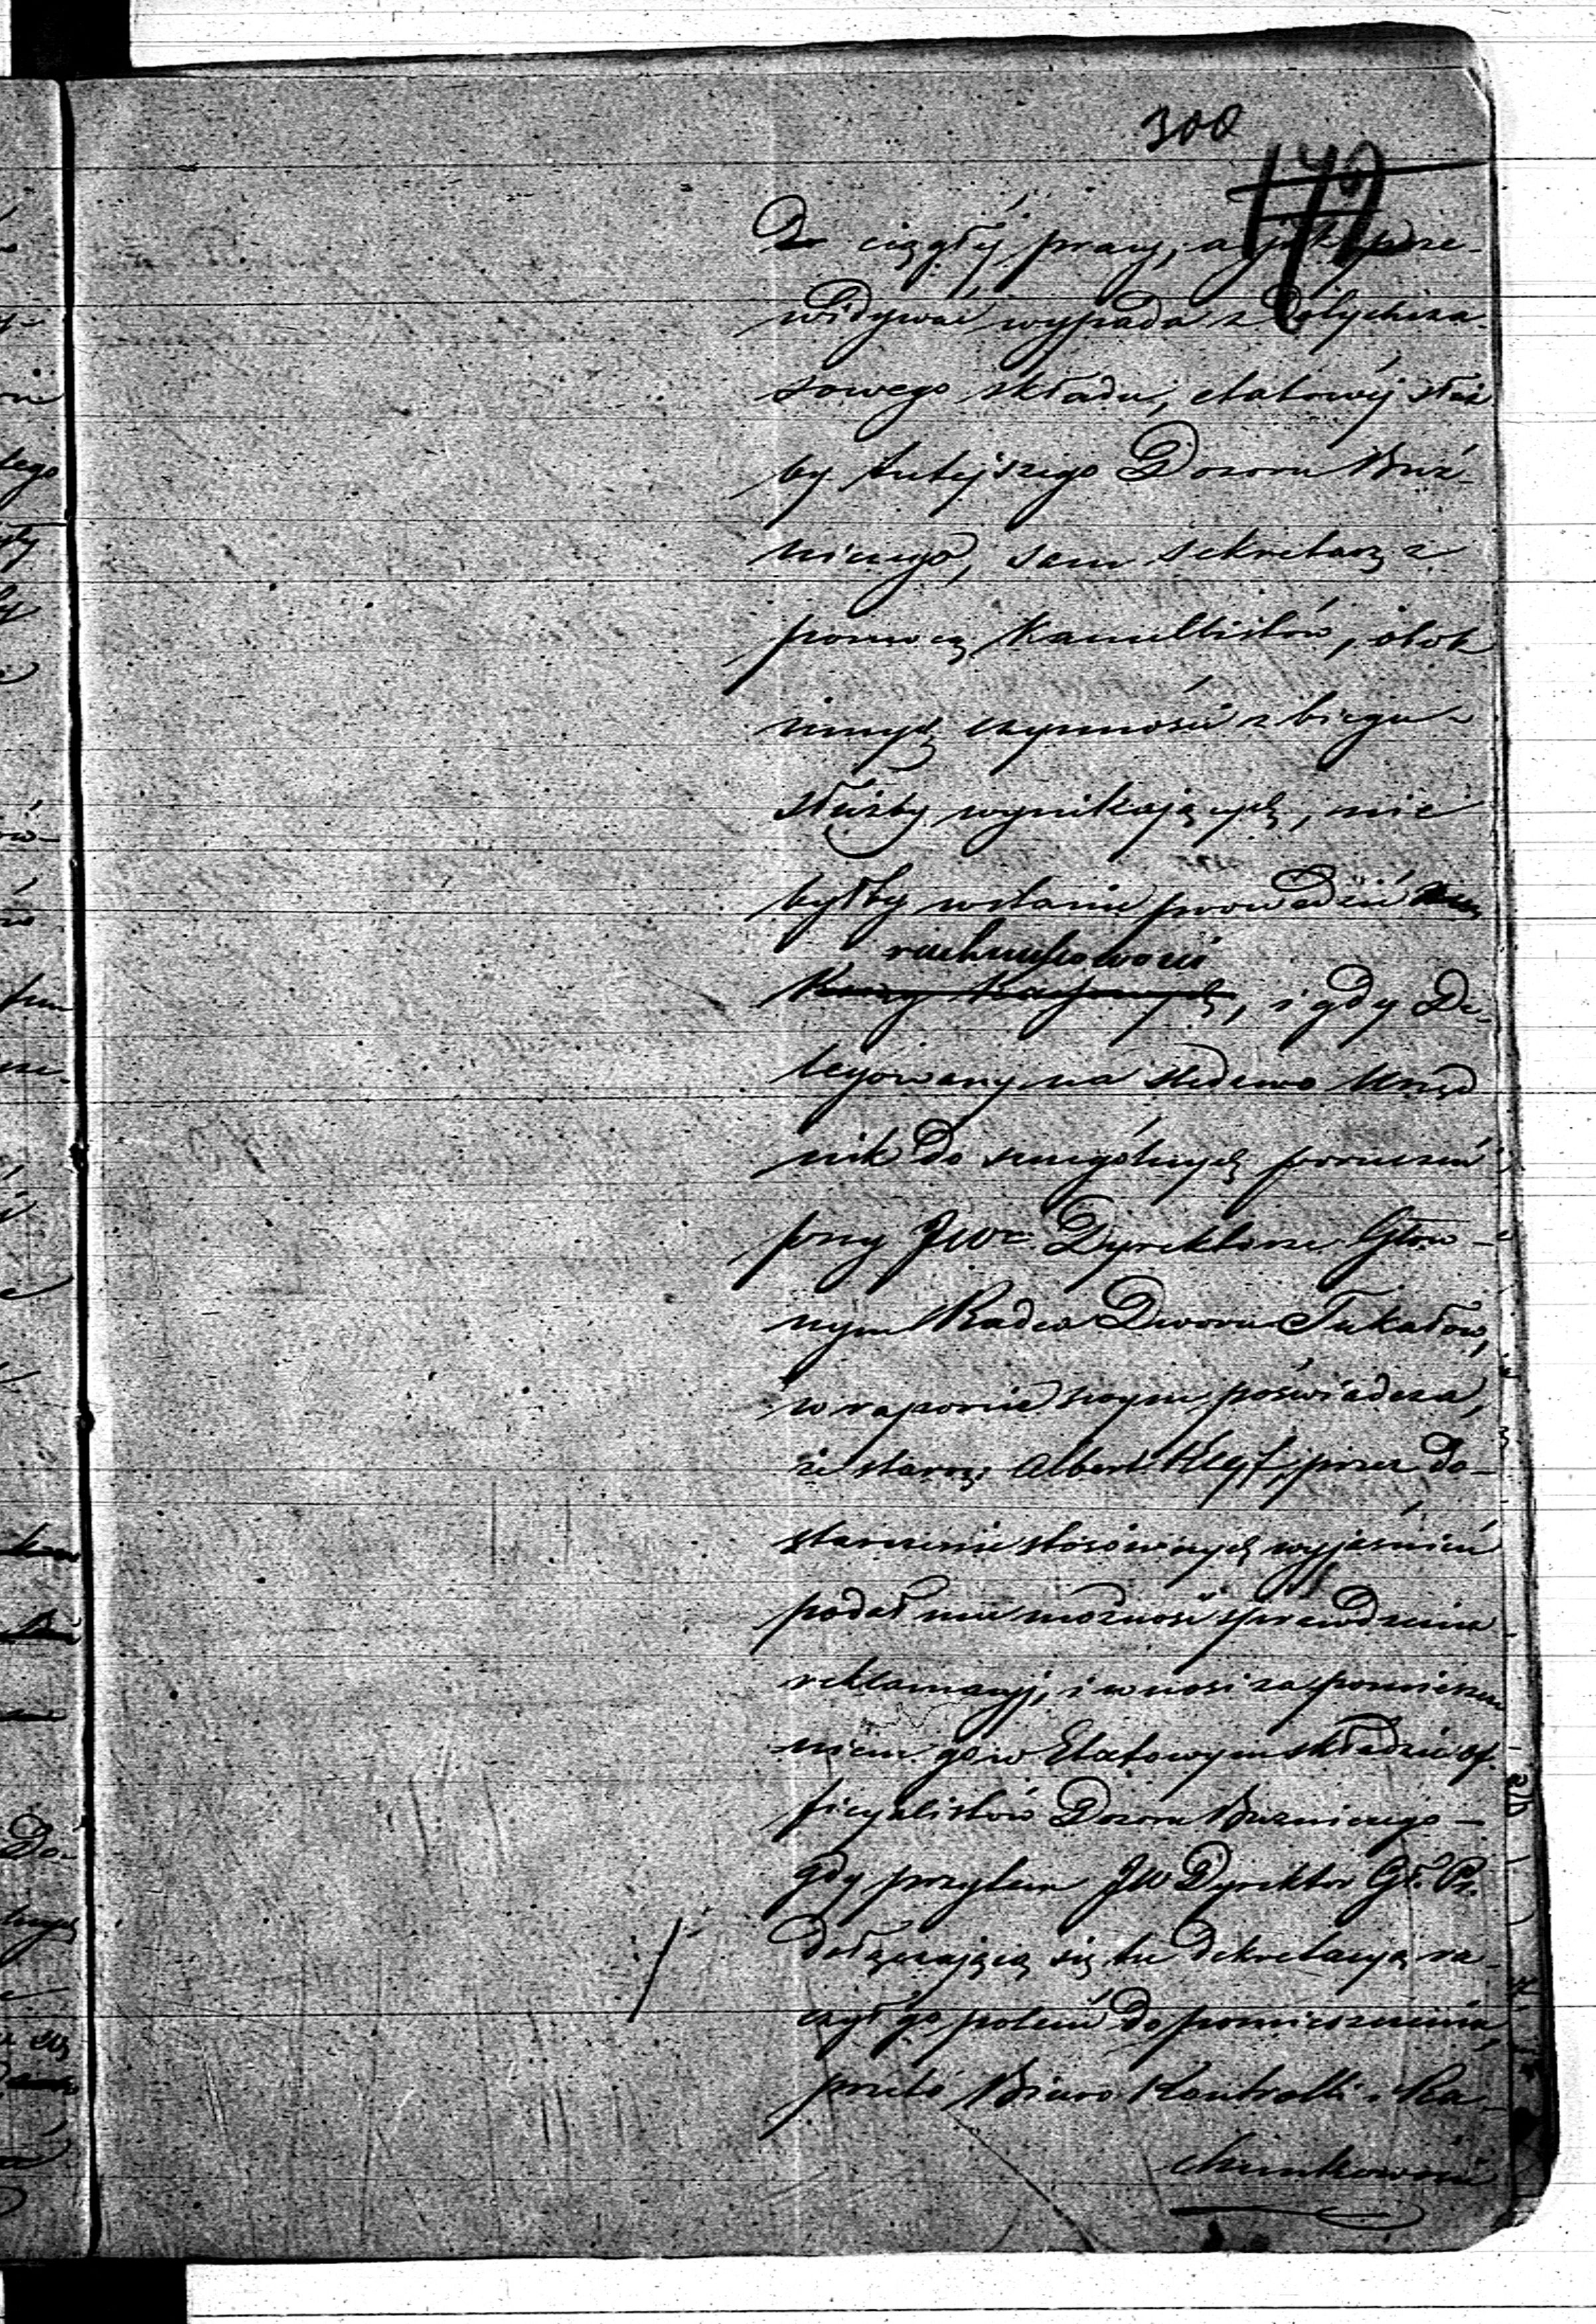 300
179
do ciągłej pracy, a jak prze-
widywać wypada z dotychcza-
sowego składu, etatowej służ
by tutejszego Dozoru Bóż-
niczego, sam sekretarz z
pomocą Kancellistów, obok
innych czynności z biegu
służby wynikających, nie
byłby wstanie prowadzić
rachunkowości
, i gdy De-
legowany na śledztwo Urzęd
nik do szczególnych poruczeń
przy JWc. Dyrektorze Głów-
nym Radca Dworu Tukałow,
w raporcie swym poświadcza,
że staroz: Albert przez do-
starczenie stósownych wyjaśnień
podał mu możność sprawdzenia
reklamacyj, i wnosi za pomieszcze
niem go w Etatowym składzie of-
ficyalistów Dozoru Bożniczego –
gdy przytem JW Dyrektor Gł. Pr.
dołączającą się tu dekretacyą ra-
czył go polecić do pomieszczenia,
przeto Biuro Kontrolli i Ra-
chunkowości